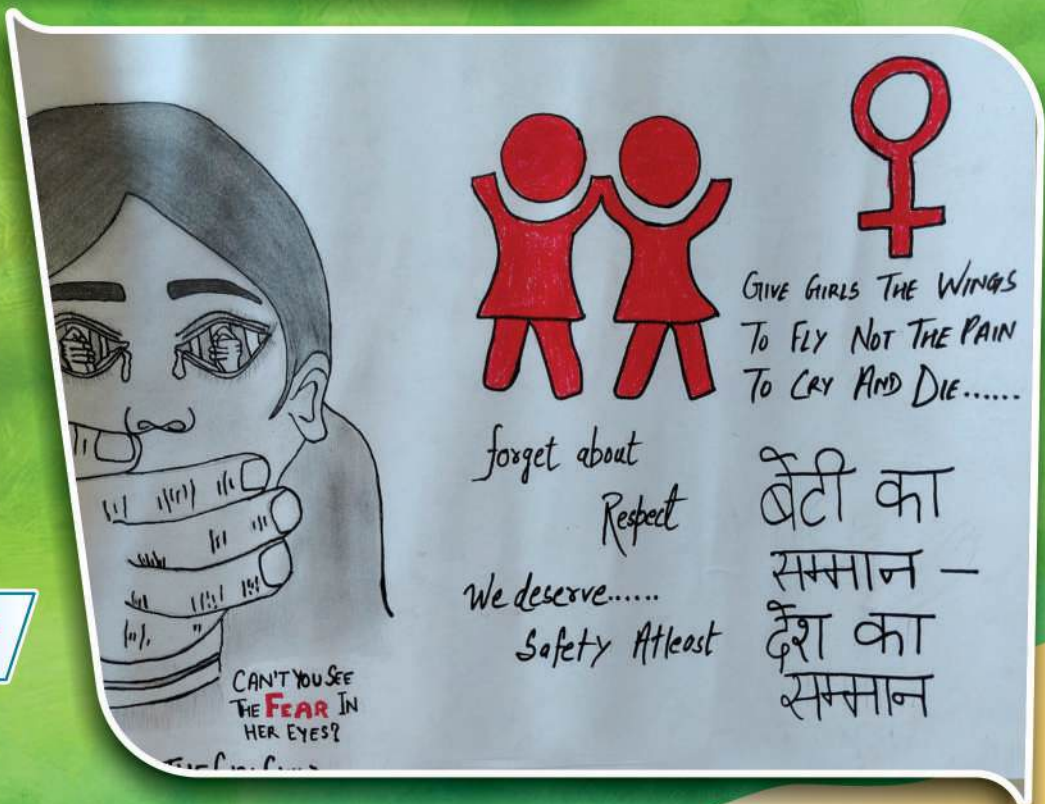 GIVE GIRLS THE WINGS
TO FLY NOT THE PAIN
TO CRY AND DIE......
forget about
Respect
We deserve......
Safety Atleast
बेटी का
सम्मान –
देश का
सम्मान
CAN'T YOU SEE
THE FEAR IN
HER EYES?